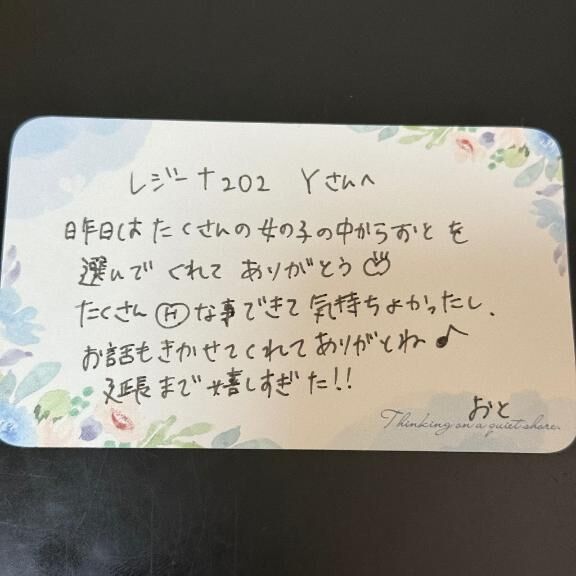 レジーナ202 Yさんへ
昨日はたくさんの女の子の中からおとを
選んでくれてありがとう
たくさんⒽな事できて気持ちよかったし、
お話もきかせてくれてありがとね♪
延長まで嬉しすぎた!!
おと
Thinking on a quiet shore.